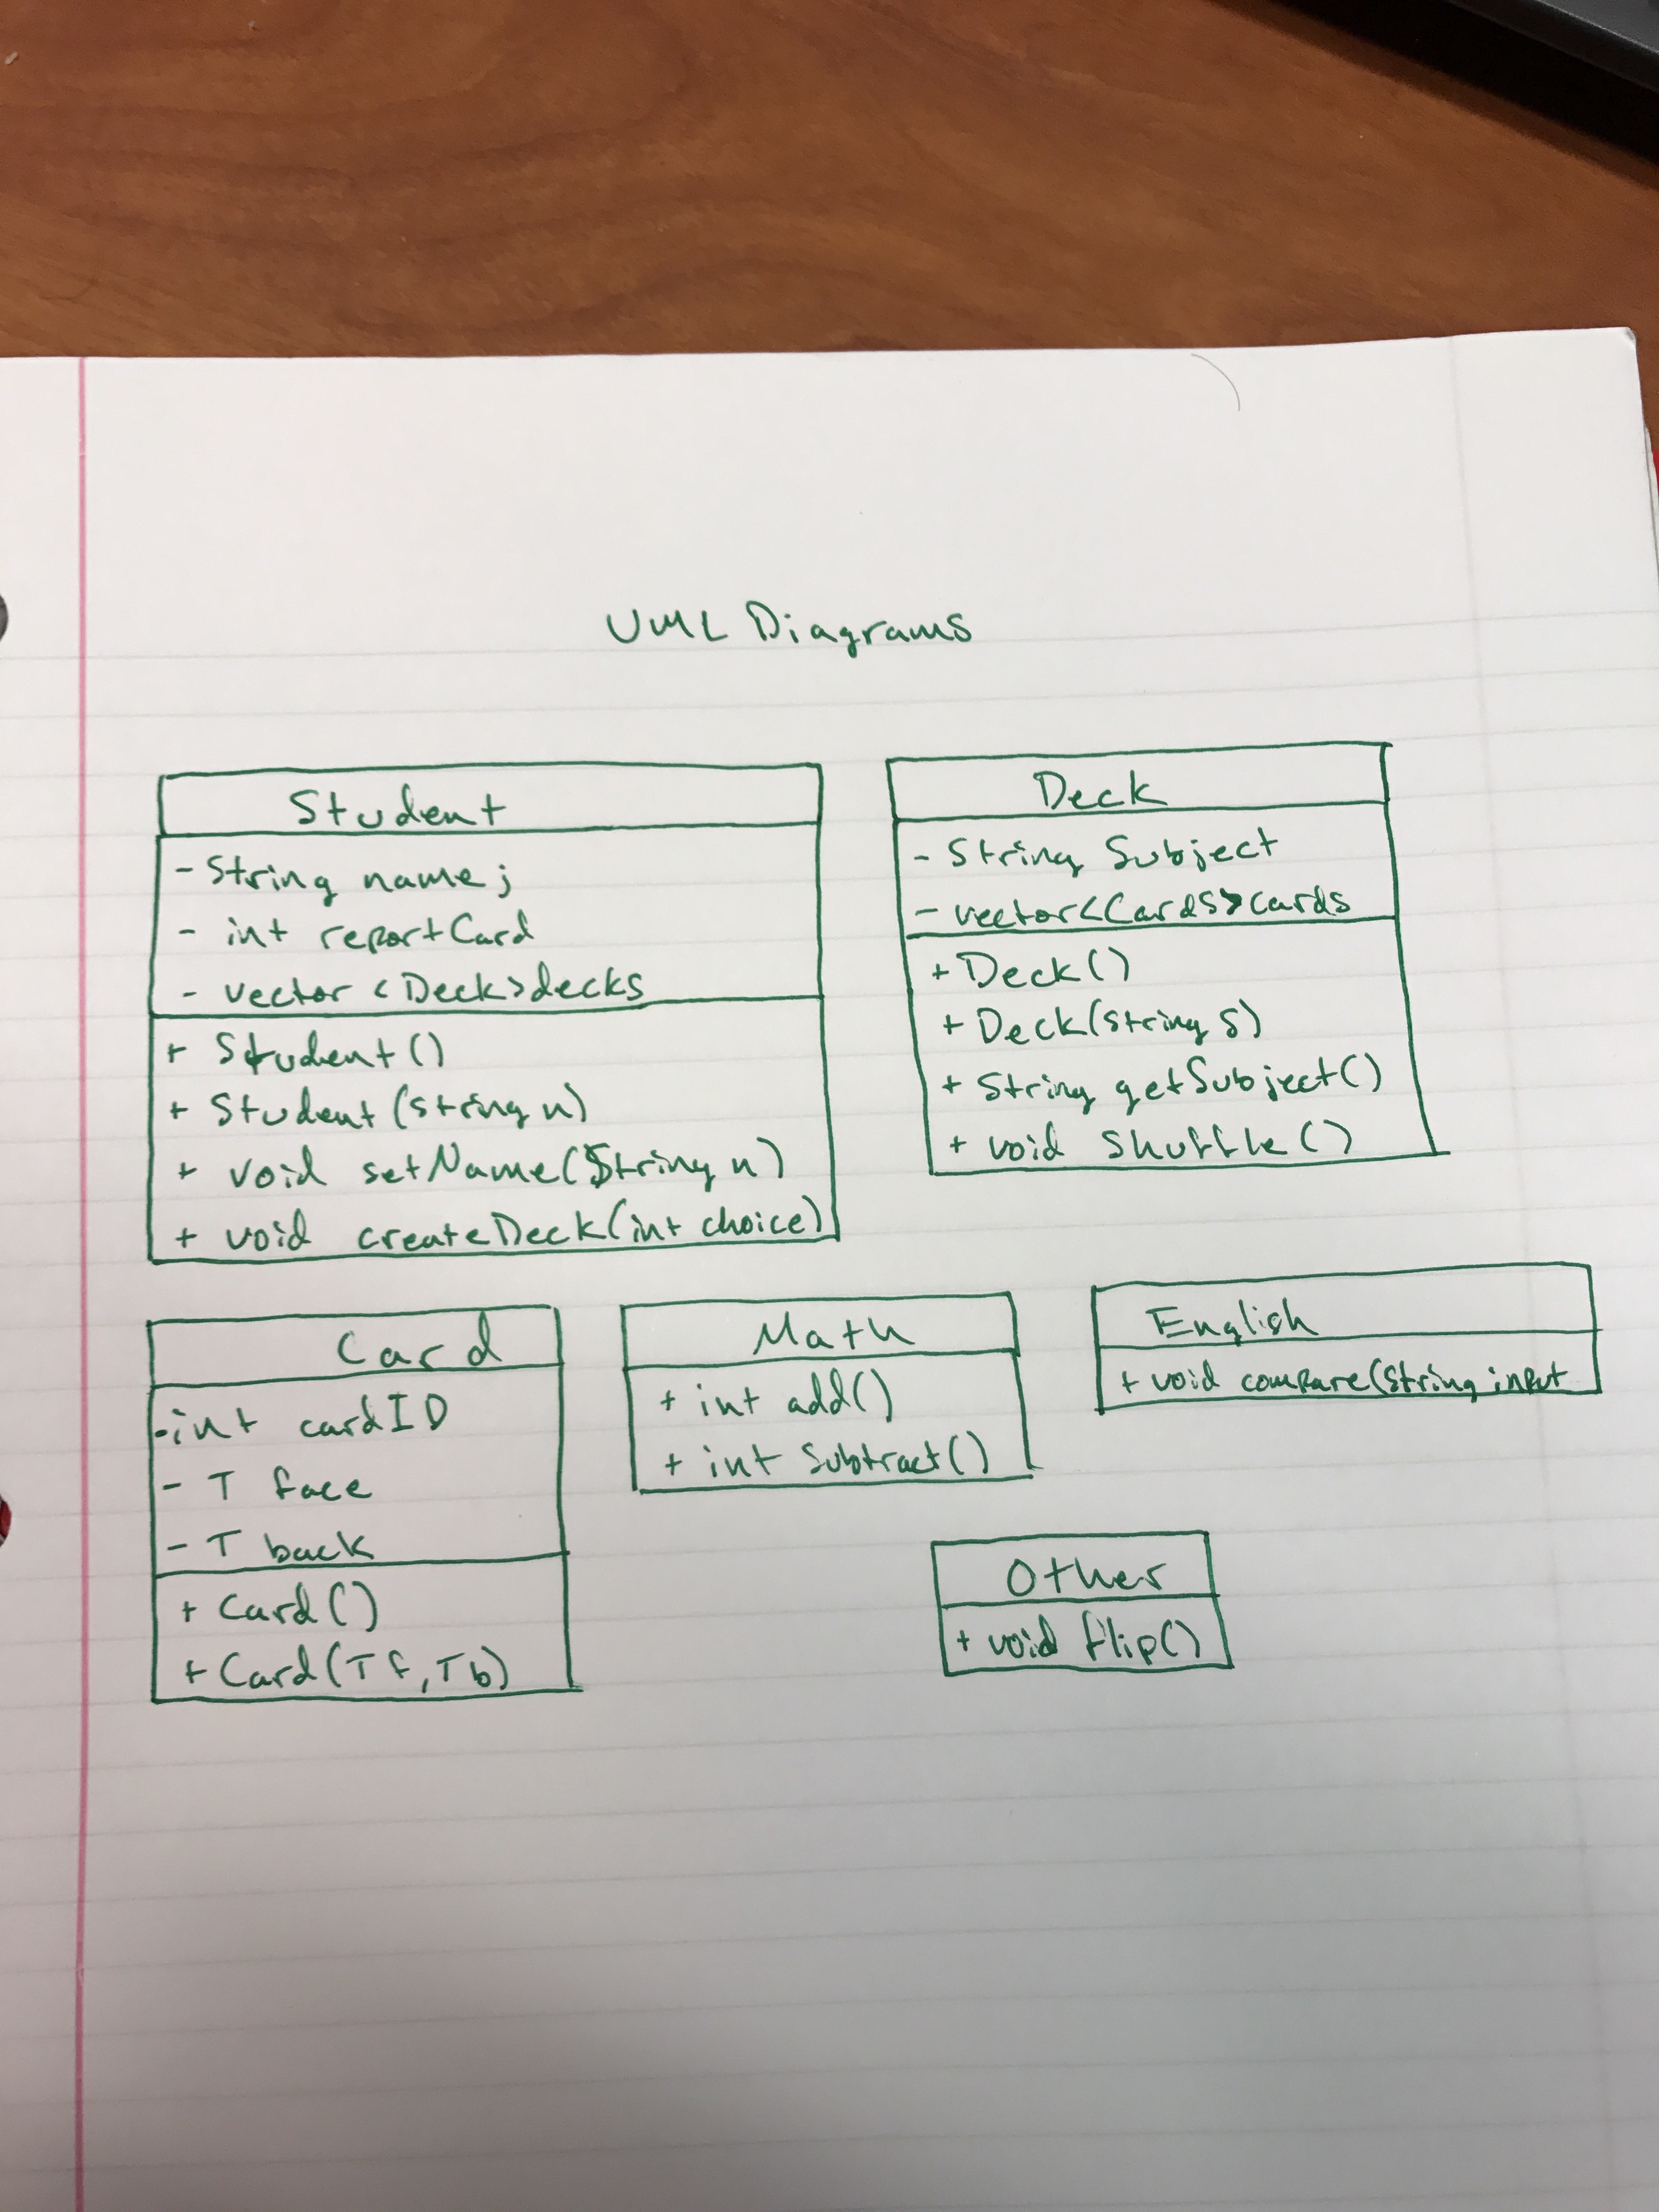 UML Diagrams
Student
- String name;
- int reportCard
- vector <Deck> decks
+ Student()
+ Student(string n)
+ void setName(String n)
+ void createDeck(int choice)
Deck
- String Subject
- vector<Cards> cards
+ Deck()
+ Deck(string s)
+ String getSubject()
+ void shuffle()
Card
- int cardID
- T face
- T back
+ Card()
+ Card(T f, T b)
Math
+ int add()
+ int subtract()
English
+ void compare(String input
Other
+ void flip()